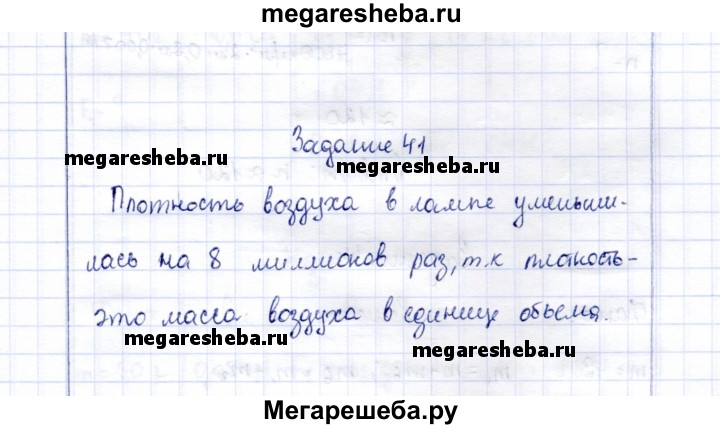 megaresheba.ru
Задание 41
megaresheba.ru
megaresheba.ru
Плотность воздуха в лампе уменьши-
лась на 8 миллионов раз, т.к плотность-
это масса воздуха в единице объема.
megaresheba.ru
megaresheba.ru
Мегарешеба.ру